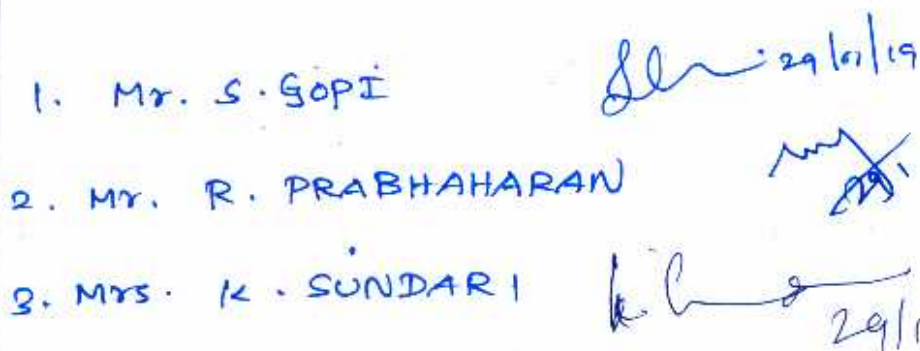 1. Mr. S. GOPI
2. Mr. R. PRABHAHARAN
3. Mrs. K. SUNDARI